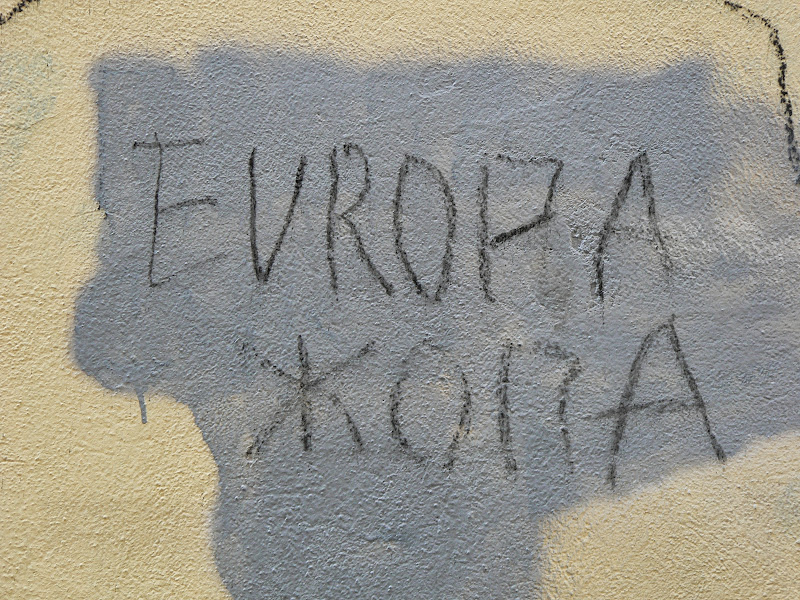 EVROPA
ЖОПА